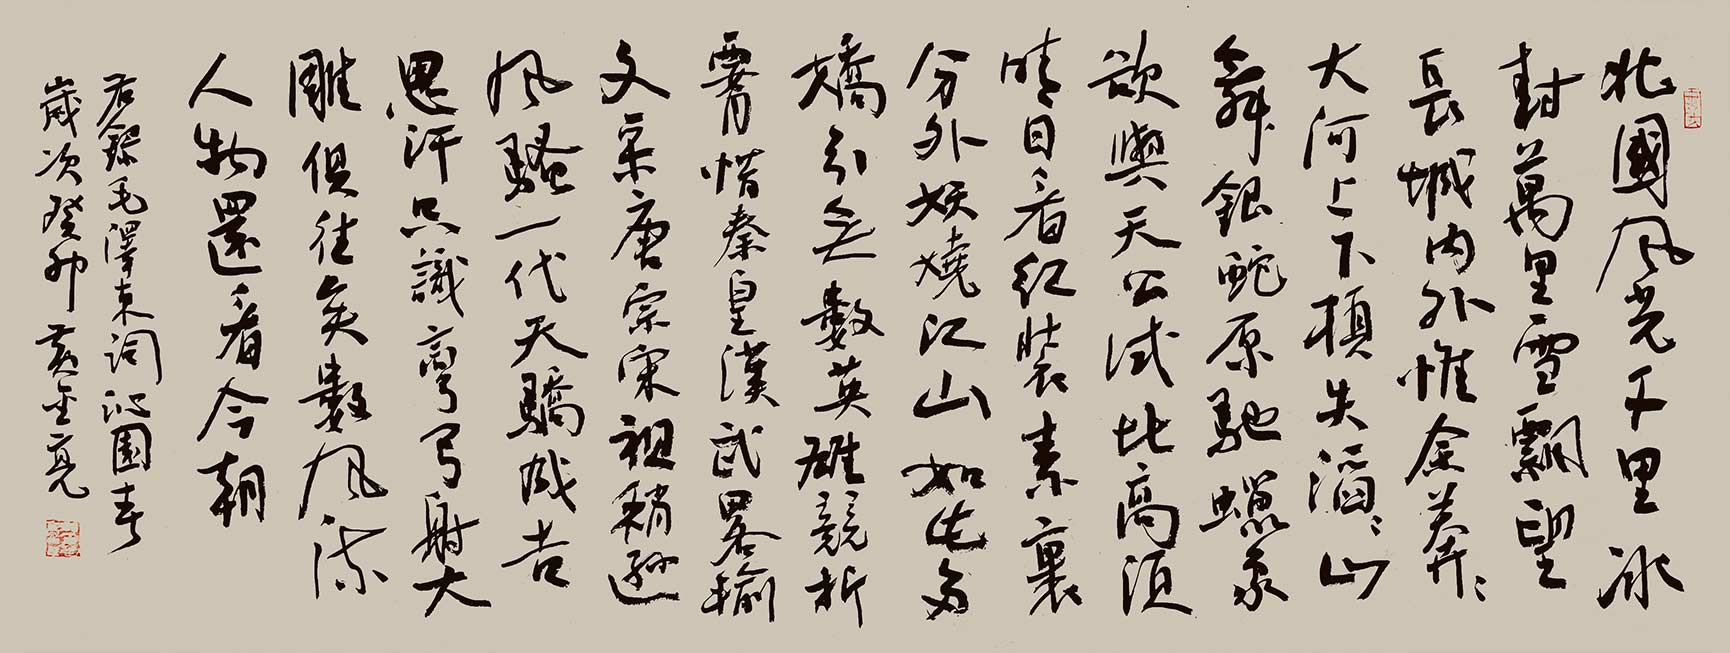 北國风光千里冰
封萬里雪飄望
長城内外惟余莽〻
大河上下頓失滔〻山
舞銀蛇原馳蠟象
欲與天公試比高須
晴日看紅裝素裹
分外妖嬈江山如此多
嬌引无數英雄競折
腰惜秦皇漢武畧輸
文采唐宗宋祖稍遜
风騷一代天驕成吉
思汗只識彎弓射大
雕俱往矣數风流
人物還看今朝
右錄毛澤東詞沁園春
歲次癸卯黃金亮